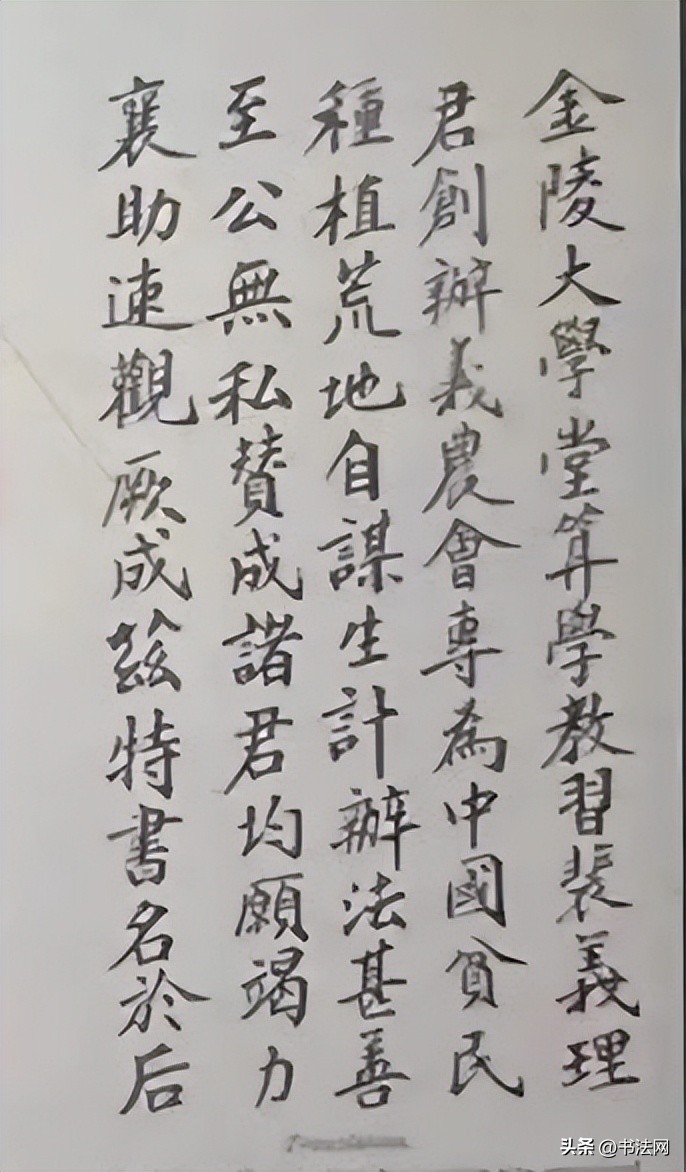 金陵大學堂算學教習裴義理
君創辦義農會專為中國貧民
種植荒地自謀生計辦法甚善
至公無私贊成諸君均願竭力
襄助速觀厥成茲特書名於后
头条 @书法网